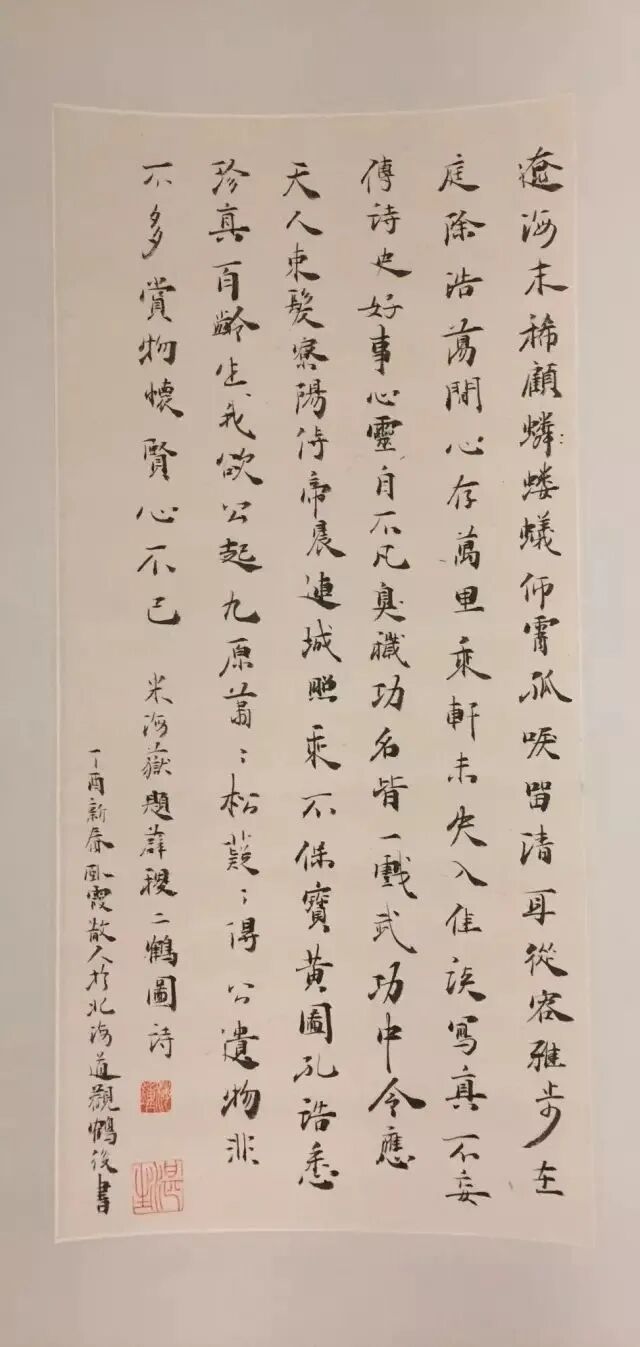 遼海未稀顧螻蟻仰霄孤唳留清耳從容雅步在
庭除浩蕩閒心存萬里乘軒未失入佳談寫真不妄
傳詩史好事心靈自不凡臭穢功名皆一戲武功中令應
天人束髮寮陽侍帝晨連城照乘不保寶黃圖孔誥悉
珍真百齡生我欲公起九原蕭〻松薿〻得公遺物非
不多賞物懷賢心不已 米海嶽題薛稷二鶴圖詩
丁酉新春臥霞散人於北海道觀鶴後書